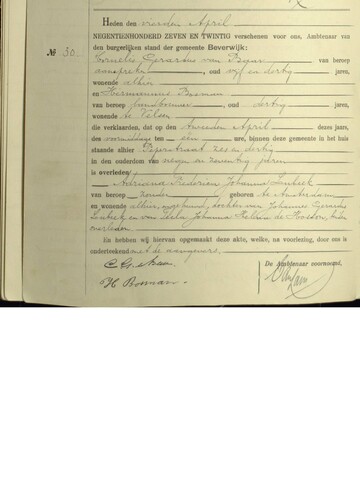 Heden den vierden April
NEGENTIENHONDERD ZEVEN EN TWINTIG verschenen voor ons, Ambtenaar van
den burgerlijken stand der gemeente Beverwijk:
№ 30.
Cornelis Gerardus van van beroep
aanspreker, oud vijf en dertig jaren,
wonende alhier
en Hermannus Bosman
van beroep landbouwer, oud dertig jaren,
wonende te Velsen
die verklaarden, dat op den tweeden April dezes jaars,
des voormiddags ten een ure, binnen deze gemeente in het huis
staande alhier Peperstraat zes en dertig
in den ouderdom van negen en zeventig jaren
is overleden:
Adriana Frederica Johanna
van beroep zonder, geboren te Amsterdam
en wonende alhier, ongehuwd, dochter van Johannes Gerardus
en van Johanna de beiden
overleden.
En hebben wij hiervan opgemaakt deze akte, welke, na voorlezing, door ons is
onderteekend met de aangevers.
De Ambtenaar voornoemd,
H Bosman.